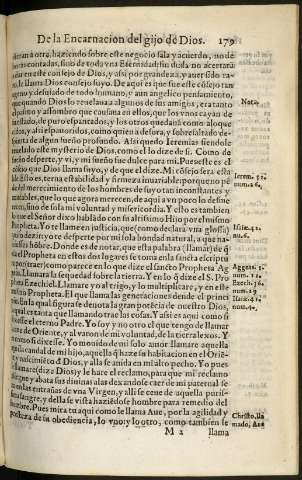 De la Encarnacion del gijo de Dios. 179
uieran à otra, haziendo sobre este negocio sala y acuerdo, no de
ras contadas, sino de toda vna Eternidad: sin duda no acertara
a dar en este consejo de Dios, y assi por grandeza, y
lo, lo llama Dios consejo suyo. De aqui es que fue este consejo
ageno y desusado de todo humano, y aun angelico pensamiento,
que quando Dios lo reuelaua a algunos de sus amigos, era tanto
el pasmo y assombro que causaua en ellos, que los vnos cayan de
su estado, de puro espantados, y los otros quedauan como aloque
cidos, y assi pauoridos, como quien a desora, y sobresaltado de
spierta de algun sueño profundo. Assi quedò Ieremias siendole
reuelado este mysterio de Dios, como el lo dize de si. Como de
sueño desperte, y vi, y mi sueño fue dulce para mi. Pues este es el
negocio que Dios llama suyo, y de que el dize. Mi cõsejo sera esta
ble
del merecimiento de los hombres de suyo tan inconstantes y
mudables, que lo que agora merecen, de aqui a vn poco lo desme
recen, sino de sola mi voluntad y misericordia. Y ello es tambien
lo que el Señor dixo hablado con su altissimo Hijo por el mismo
Propheta. Yo te llame en justicia, que (como declara vna glossa)
quiso dezir: yo te desperte por mi sola bondad natural, a que na
ciesses hõbre. Donde es de notar, que esta palabra (llamar) de q̃
el Propheta en estos dos lugares se toma en la sancta escriptu
ra por traer: como parece en lo que dize el sancto Propheta Ag
geo. Llamarè la sequedad sobre la tierra. Y en lo q̃ dize el S. Pro
pheta Ezechiel. Llamarè yo al trigo, y lo multiplicarè, y en este
mismo Propheta. El que llama las generaciones desde el princi
pio. En la qual figura se denota la gran potẽcia de nuestro Dios,
al qual estan ta que llamando trae las cosas. Y assi es aqui como si
dixesse el eterno Padre. Yo soy y no otro el que tengo de llamar
aue de Oriente, y al varon de mi voluntad, de la tierra lexos. Y
como si dixesse. Yo mouido de mi solo amor llamare aquella
aguila caudal de mi hijo, aquella q̃ haze su habitacion en el Oriẽ
te y nacimiẽto d̃ Dios, y alla se anida en mi alto pecho. Yo pues
la llamare (dize Dios) y le hare el reclamo, para que mi reclamo
y abata sus diuinas alas dexandose caer de mi paternal se
no en las entrañas de vna Virgen, y alli se cebe de aquella puris
sima sangre, y della se vista haziẽdose hombre para remedio del
hombre. Pues mira tu aqui como le llama Aue, por la agilidad y
presteza de su obediencia, lo vno y lo otro, como tambien se
M 2 llama
Nota.
Ierem. 31.
num. 26.
Isaie. 42.
nu. 6.
Aggeus. 1.
num. 11.
Ezech. 36.
num. 29.
nu. 4.
Christo, lla
mado, Aue